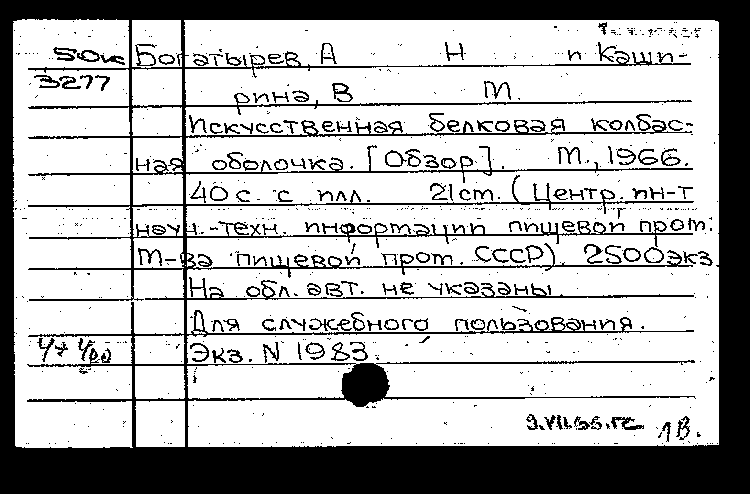 50к Богатырев, А Н и Кашп-
3277 рина, В М.
Искусственная белковая колбас-
ная оболочка. [Обзор]. М., 1966.
40 с. с илл. 21 см. (Центр. ин-т
науч.-техн. информации пищевой пром.
М-ва пищевой пром. СССР). 2500 экз.
На обл. авт. не указаны.
Для служебного пользования.
Экз. N 1983.
1В.